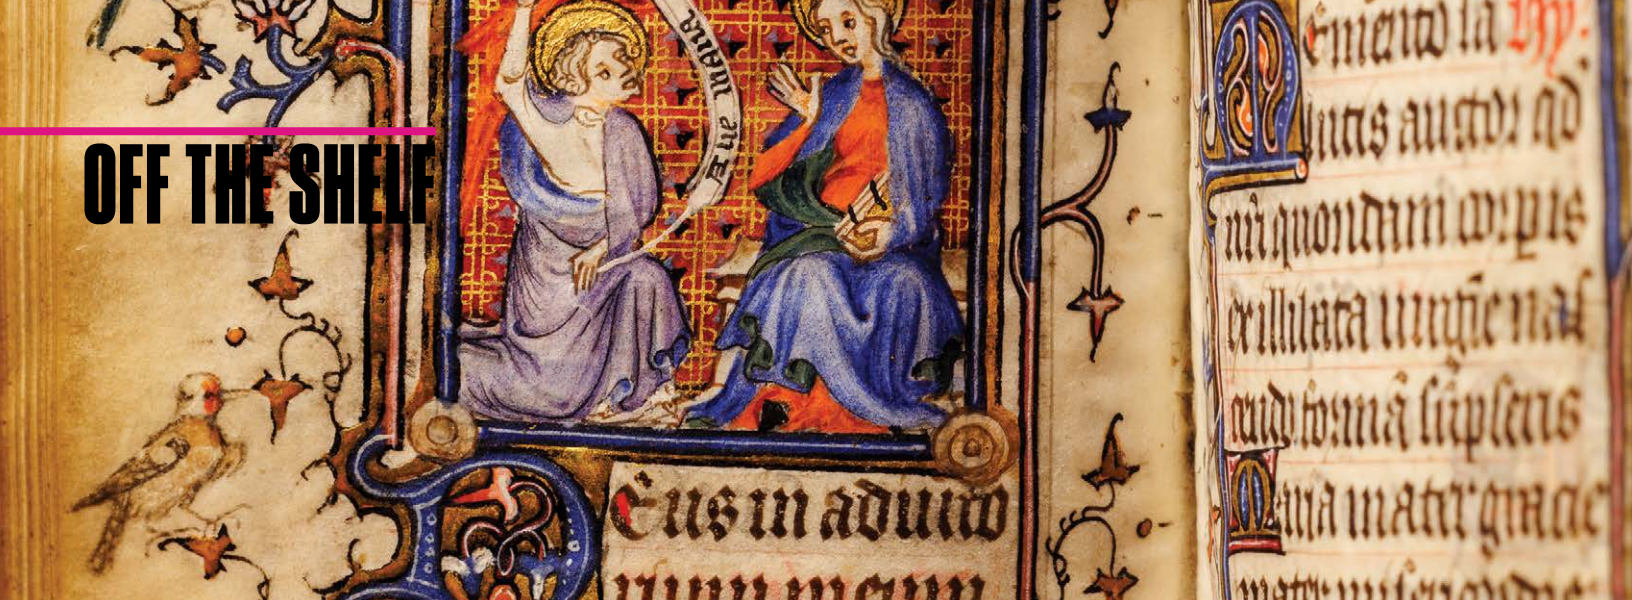 OFF THE SHELF
Deus in adiuto
Memento sa hy.
lutis auctor qd
nri quondam corpis
ex illibata virgine nas
cendi formā sūpseris
Maria mater gracie